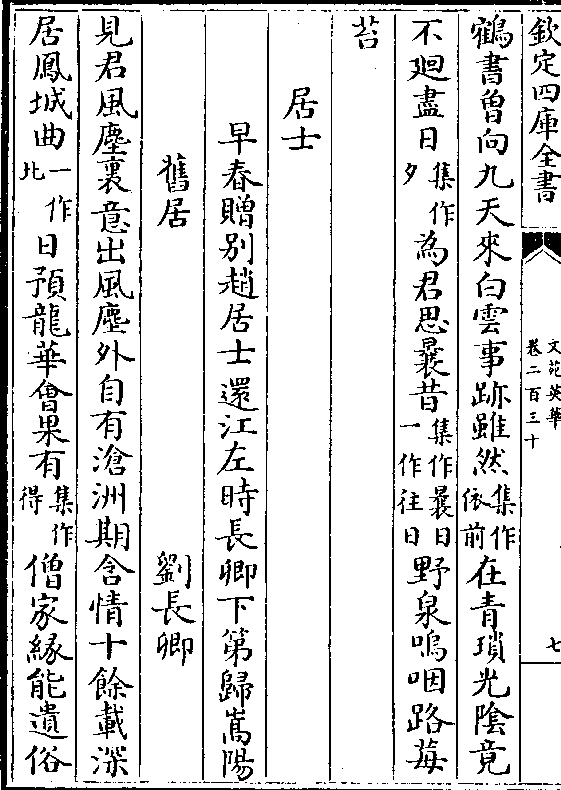 欽定四庫全書
文苑英華
卷二百三十
七
鶴書曾向九天來白雲事跡雖然集作依前在青瑣光陰竟
不廻盡日集作夕為君思曩昔集作曩日一作往日野泉嗚咽路莓
苔
居士
早春贈別趙居士還江左時長卿下第歸嵩陽
舊居
劉長卿
見君風塵裏意出風塵外自有滄洲期含情十餘載深
居鳳城曲一作北日預龍華會果有集作得僧家緣能遺俗